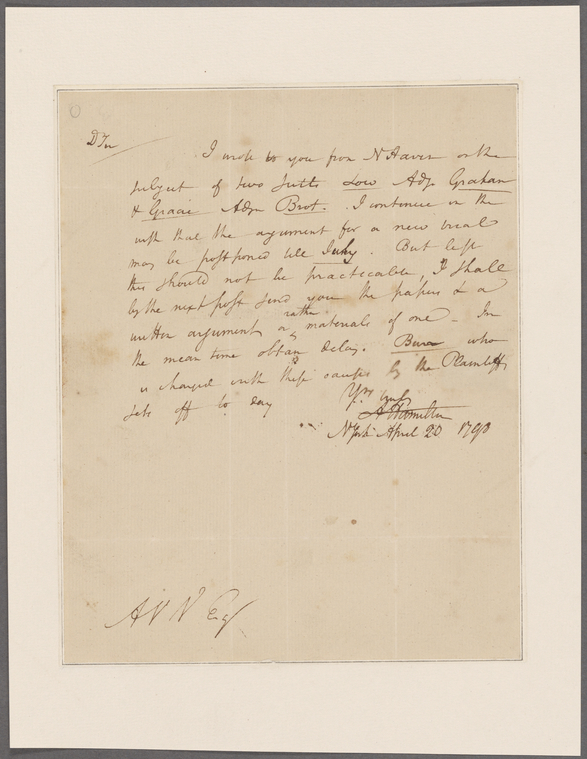 D Sir
I wrote to you from N Haven on the
subject of two suits Low Ads Graham
& Gracie Ads Brot. I continue in the
wish that the argument for a new trial
may be postponed till July. But lest
this should not be practicable, I shall
by the next post send you the papers & a
written argument or rather materials of one - In
the mean time obtain delay. Burr who
is charged with these causes by the Plaintiffs
sets off to day
Yrs truly
A Hamilton
NYork April 20 1798
A V N Esq